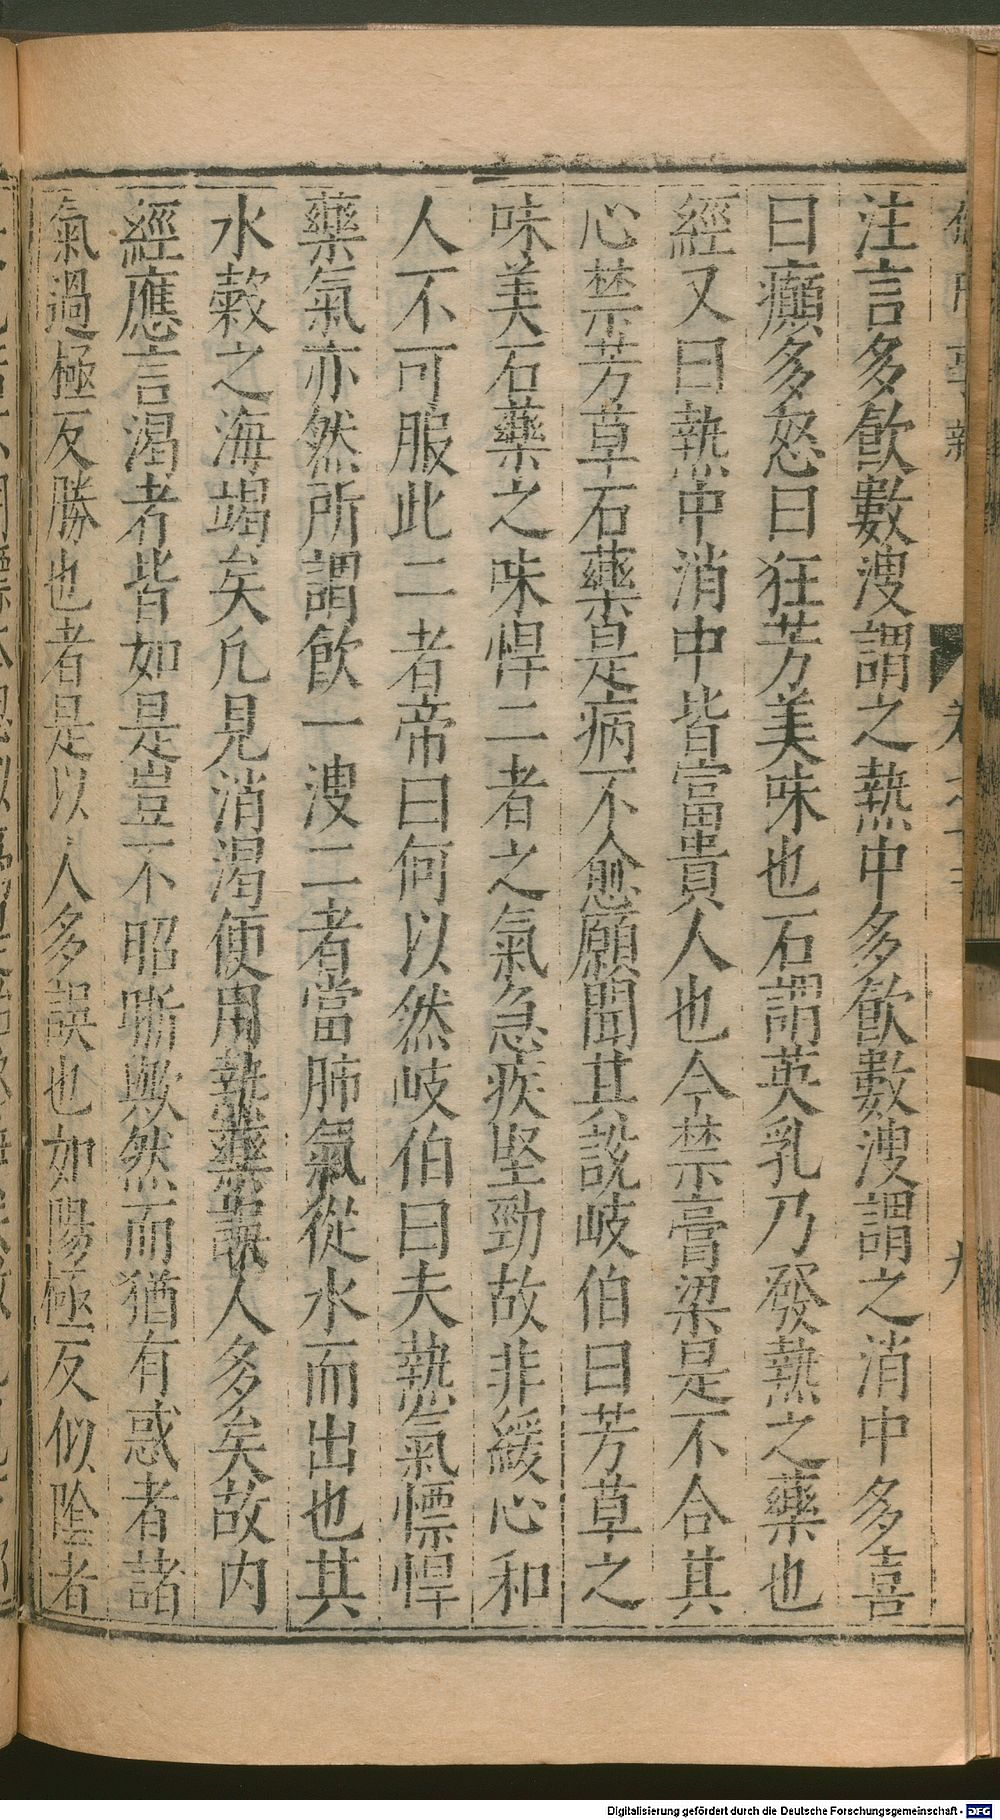 注言多飮數溲謂之熱中多飮數溲謂之消中多喜
曰癲多怒曰狂芳美味也石謂英乳乃發熱之藥也
經又曰熱中消中皆富貴人也今禁膏梁是不合其
心禁芳草石藥是病不愈願聞其說岐伯曰芳草之
味美石藥之味悍二者之氣急疾堅勁故非緩心和
人不可服此二者帝曰何以然岐伯曰夫熱氣慓悍
藥氣亦然所謂飮一溲二者當肺氣從水而出也其
水穀之海竭矣凢見消渴便用熱藥誤人多矣故内
經應言渴者皆如是豈不昭晣歟然而猶有惑者諸
氣過極反勝也者是以人多誤也如陽極反似陰者
Digitalisierung gefördert durch die Deutsche Forschungsgemeinschaft - DFG